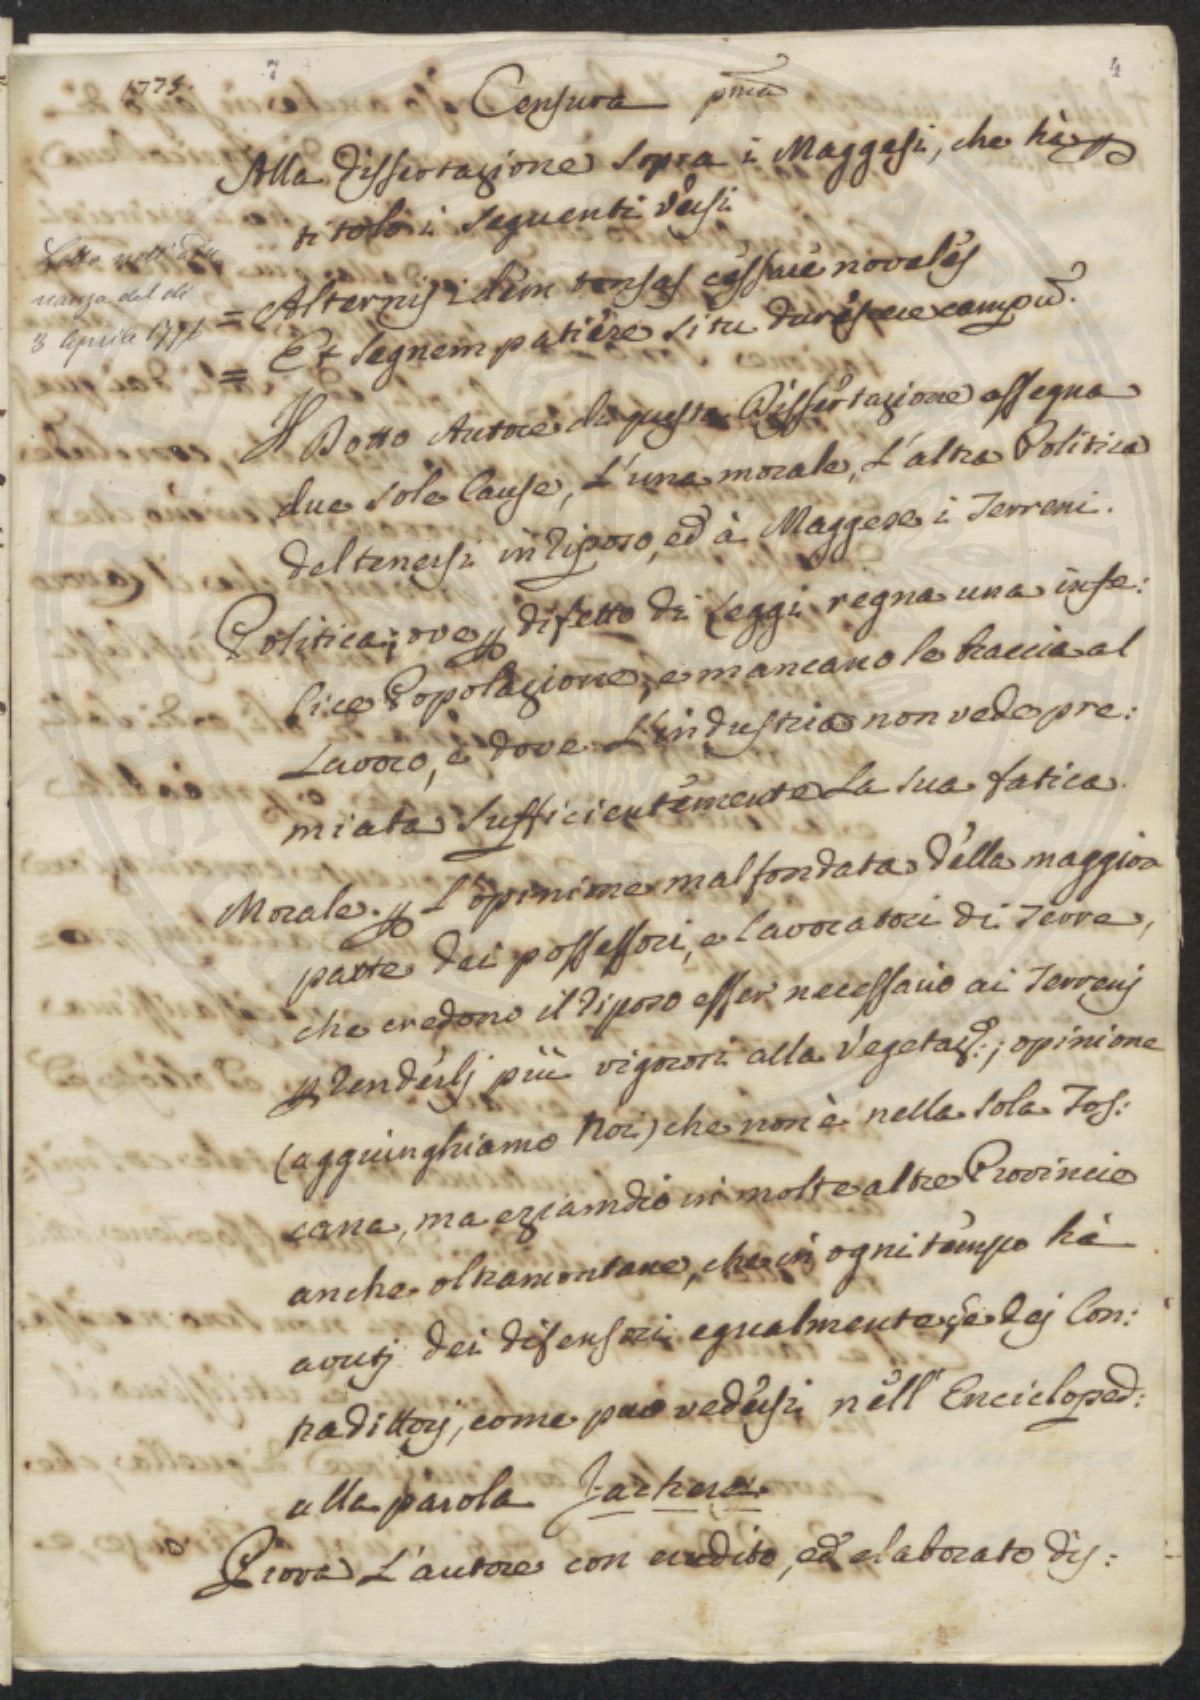 1775.
7
4
Censura pma
Alla dissertazione sopra i Maggesi, che hà p
titolo i seguenti versi
Letta nell' adu
nanza del di
3 Aprile
= Alternis idem tonsas cessare novales
= Et segnem patiere situ durescere campu.
Il Dotto Autore di questa Dissertazione assegna
due sole Cause, L'una morale, L'altra Politica
del tenersi in riposo, ed à Maggese i Terreni.
Politica; ove p difetto di Leggi regna una infe:
lice Popolazione, e mancano le braccia al
Lavoro, e dove L'industria non vede pre:
miata sufficientemente La sua fatica.
Morale. p L'opinione mal fondata della maggior
parte dei possessori, e Lavoratori di Terre,
che credono il riposo esser necessario ai Terreni
p renderli più vigorosi alla vegetaz:; opinione
(aggiunghiamo Noi) che non è nella sola Tos:
cana, ma eziamdio in molte altre Provincie
anche oltramontane, che in ogni tempo hà
avutj dei difensori egualmente, e dej Con:
tradittorj, come può vedersi nell' Encicloped:
alla parola Jachere.
Prova L'autore con erudito, ed elaborato dis: